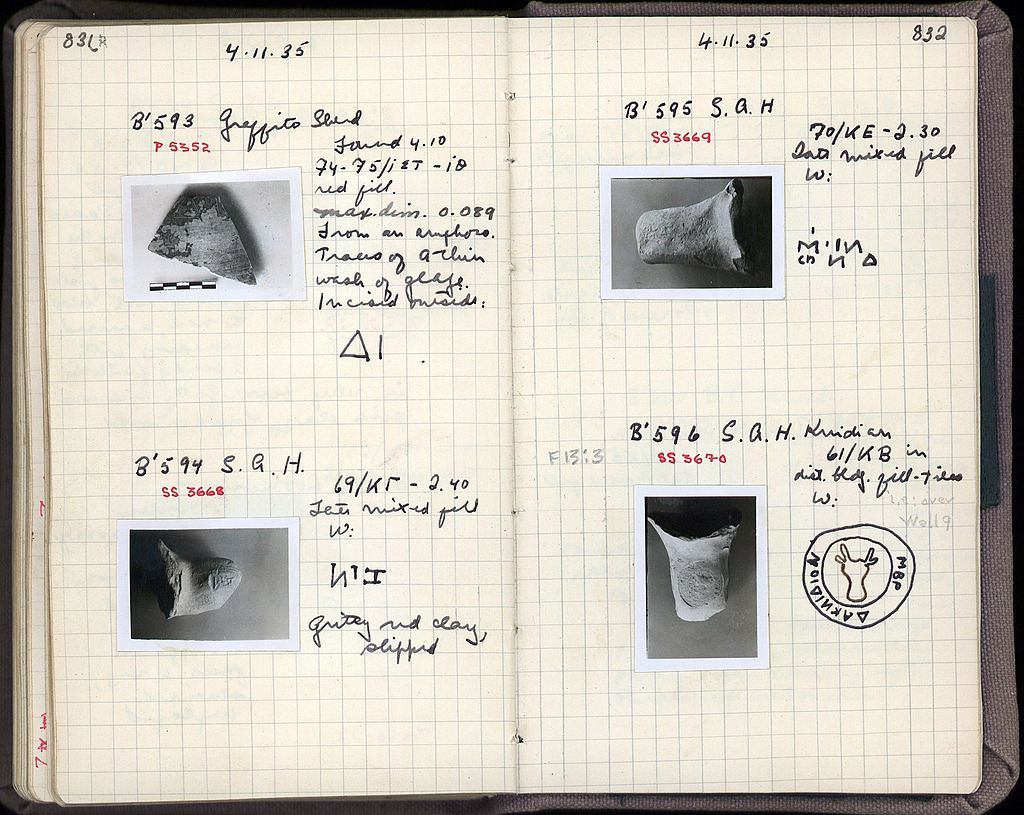 831
4·11·35
B'593 Graffito Sherd
P 5352
Found 4.10
74-75/ΙΣΤ - ΙΘ
red fill.
max. dim. 0.089
From an amphora.
Traces of a thin
wash of glaze.
Incised outside:
ΔΙ
B'594 S.A.H.
SS 3668
69/ΚΓ - 2.40
Late mixed fill
W:
Gritty red clay,
slipped
832
4·11·35
B'595 S.A.H
SS 3669
70/ΚΕ - 2.30
Late mixed fill
W:
B'596 S.A.H. Knidian
F13:3
SS 3670
61/ΚΒ in
dist. bldg. fill - tiles
W:
i.e. over
Well 9